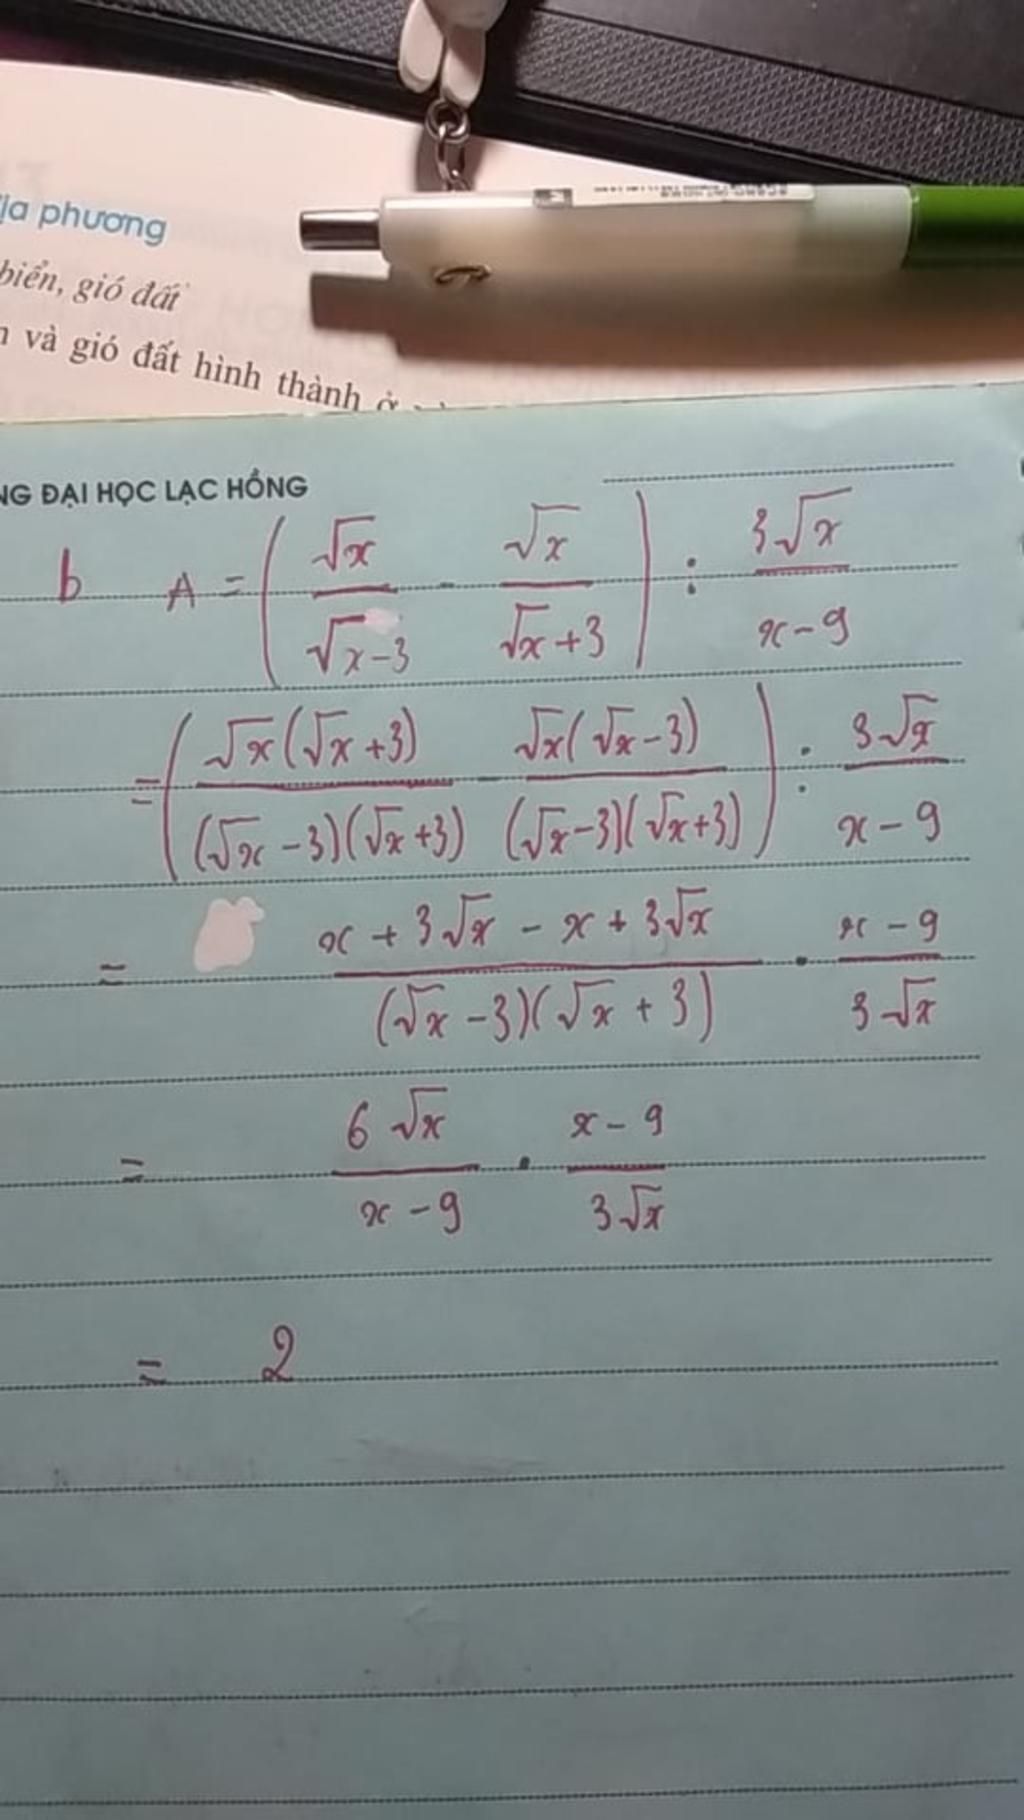 ịa phương
biển, gió đất
và gió đất hình thành ở
NG ĐẠI HỌC LẠC HỒNG
b A = ( √x / (√x - 3) - √x / (√x + 3) ) : 3√x / (x - 9)
= ( √x(√x + 3) / (√x - 3)(√x + 3) - √x(√x - 3) / (√x - 3)(√x + 3) ) : 3√x / (x - 9)
= (x + 3√x - x + 3√x) / (√x - 3)(√x + 3) . (x - 9) / 3√x
= 6√x / (x - 9) . (x - 9) / 3√x
= 2